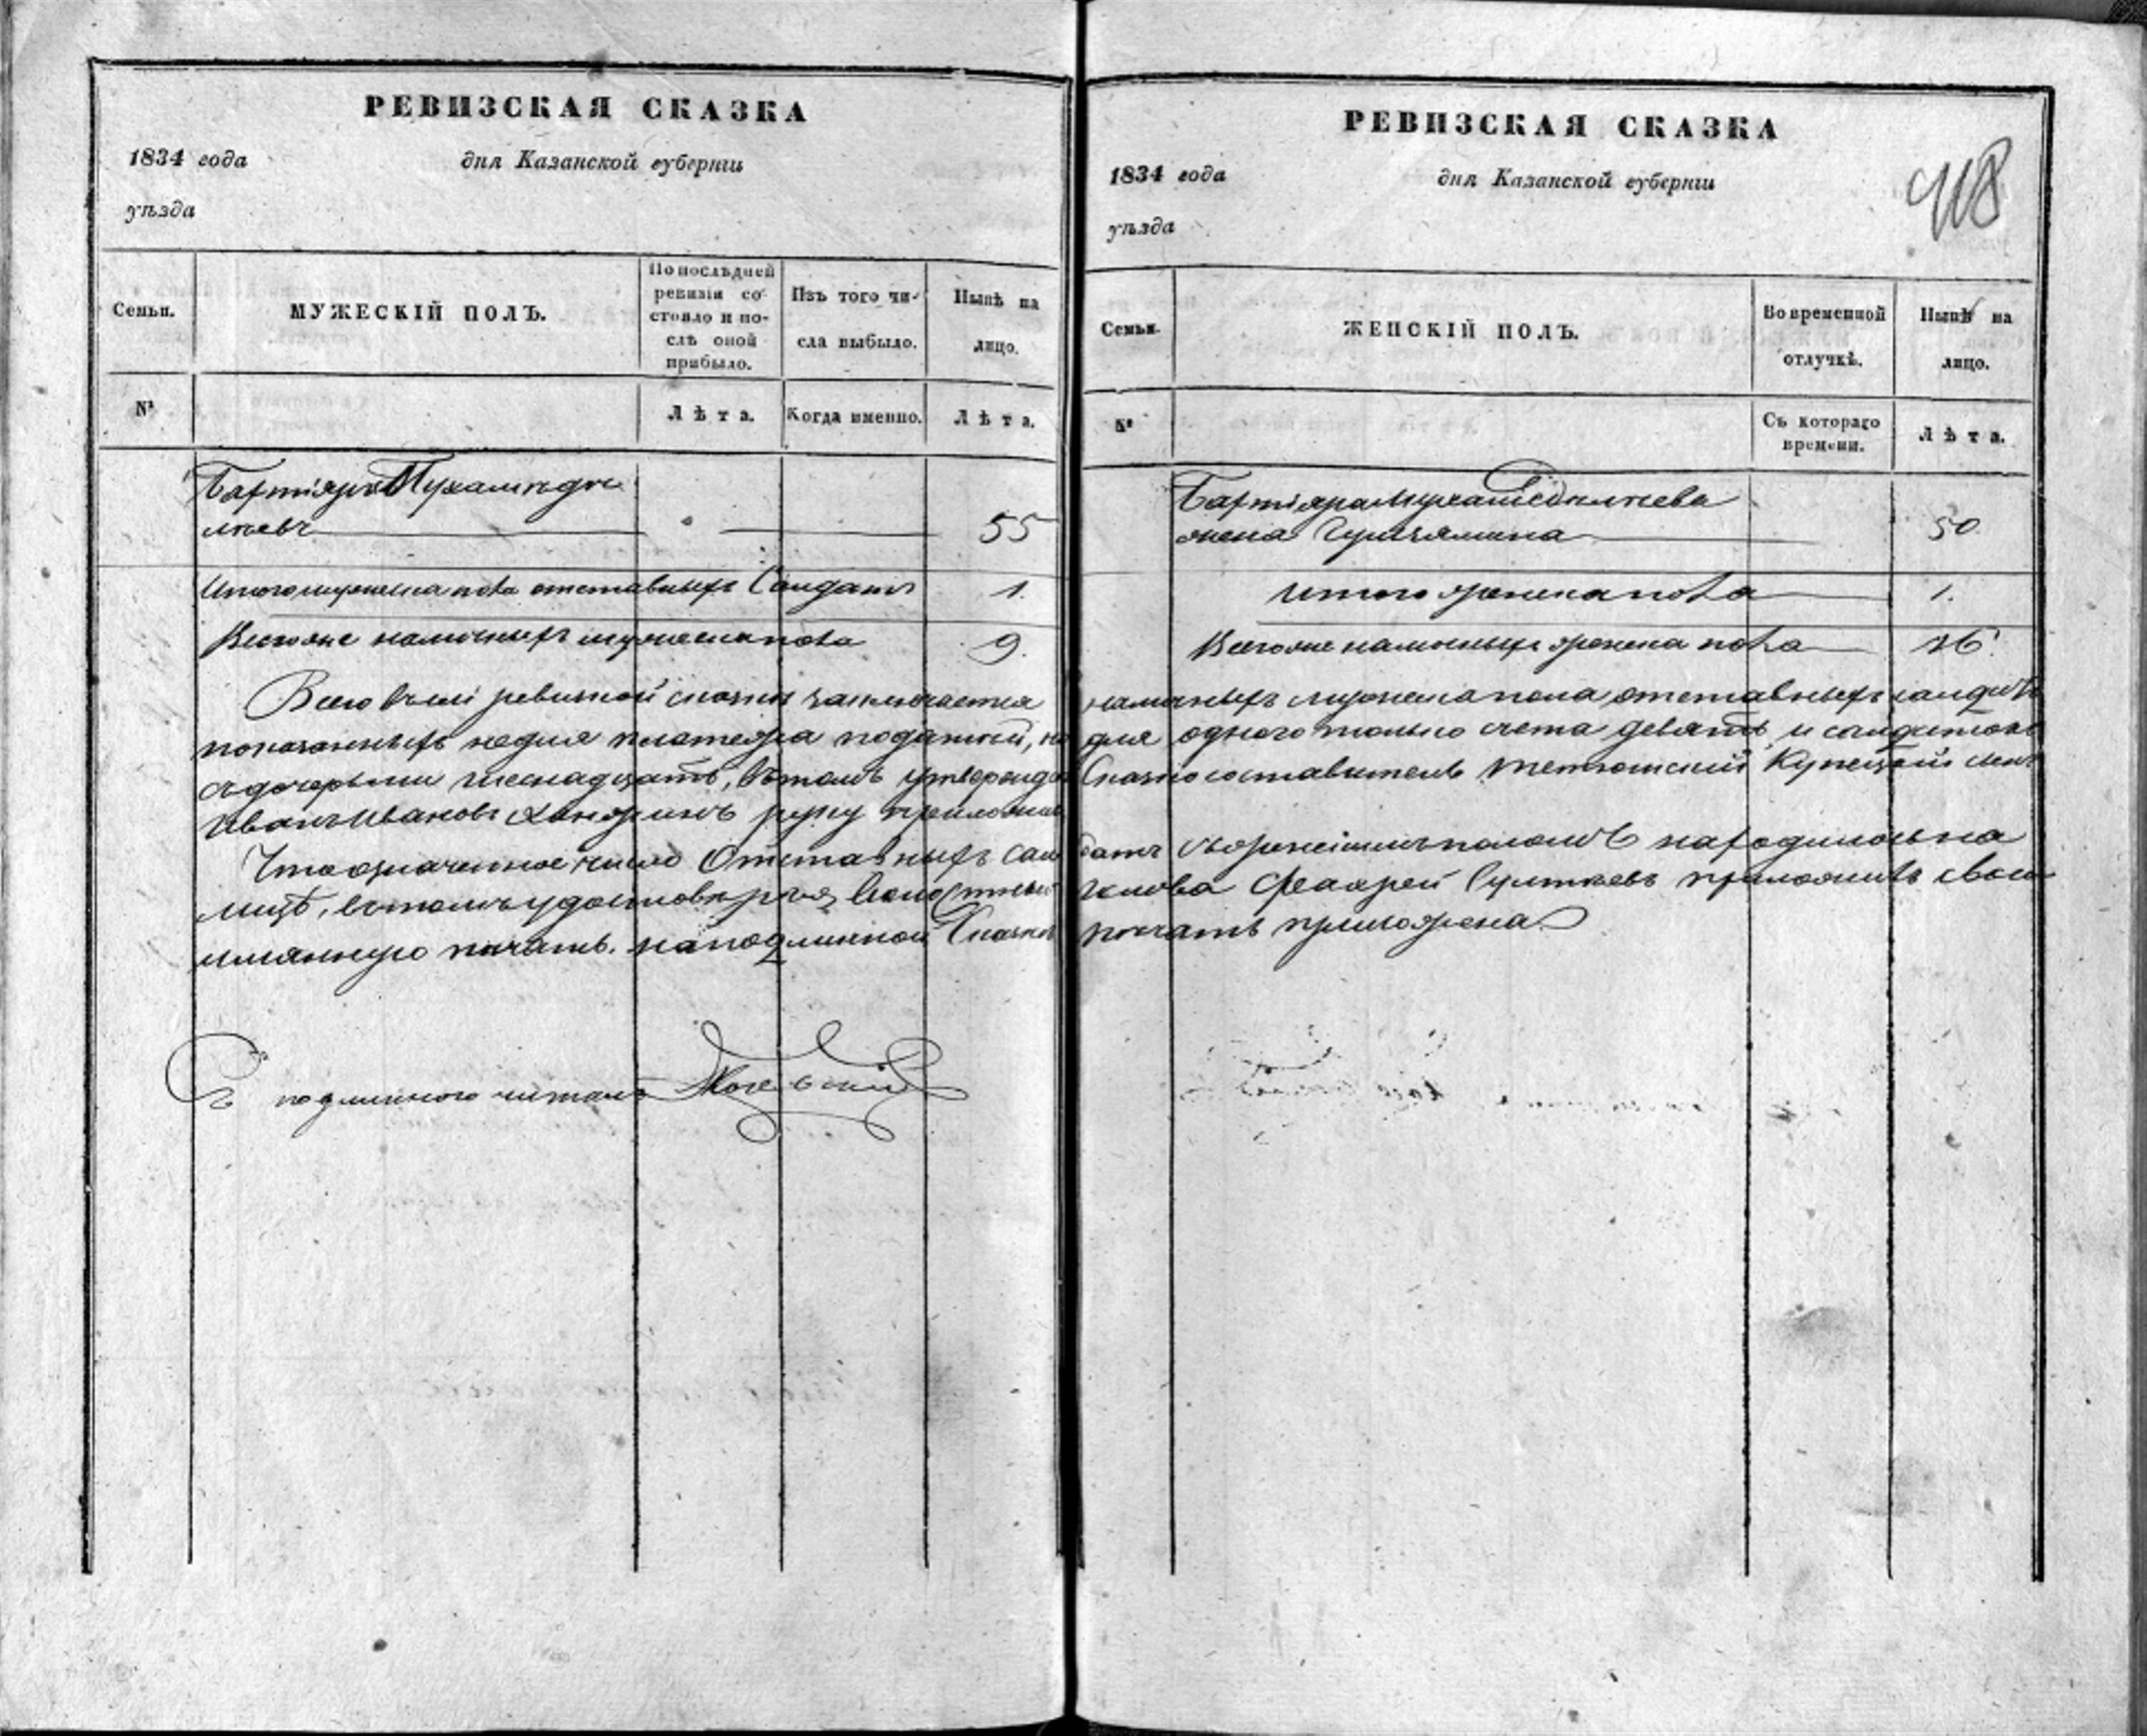 РЕВИЗСКАЯ СКАЗКА
1834 года дня Казанской губерніи
уѣзда
Семьи.
МУЖЕСКІЙ ПОЛЪ.
По послѣдней
ревизіи со-
стояло и по-
слѣ оной
прибыло.
Изъ того чи-
сла выбыло.
Нынѣ на
лицо.
№
Лѣта.
Когда именно.
Лѣта.
Бахтіяръ Мухаметди
55
Итого мужеска пола отставныхъ Солдатъ 1.
Всего же наличныхъ мужеска пола 9.
Всего въ сей ревизкой сказки заключается
показанныхъ не для платежа податей, но
съ дочерьми шеснадцать, въ томъ утвержда
Иванъ Ивановъ руку приложилъ
Что означенное число Отставныхъ Сол
лицѣ, въ томъ удостовѣряя Волостный
имянную печать. на подлинной Сказки
Съ подлиннаго читалъ
РЕВИЗСКАЯ СКАЗКА
418
1834 года дня Казанской губерніи
уѣзда
Семьи.
ЖЕНСКІЙ ПОЛЪ.
Во временной
отлучкѣ.
Нынѣ на
лицо.
№
Съ котораго
времени.
Лѣта.
Бахтіяра
жена 50.
Итого женска пола 1.
Всего же наличныхъ женска пола 16.
наличныхъ мужеска пола отставныхъ солдатъ
для одного только счета девять, и солдатокъ
Сказкосоставитель Тетюшский Купецкой
датъ съ женскимъ поломъ находилось на
голова приложилъ свою
печать приложена